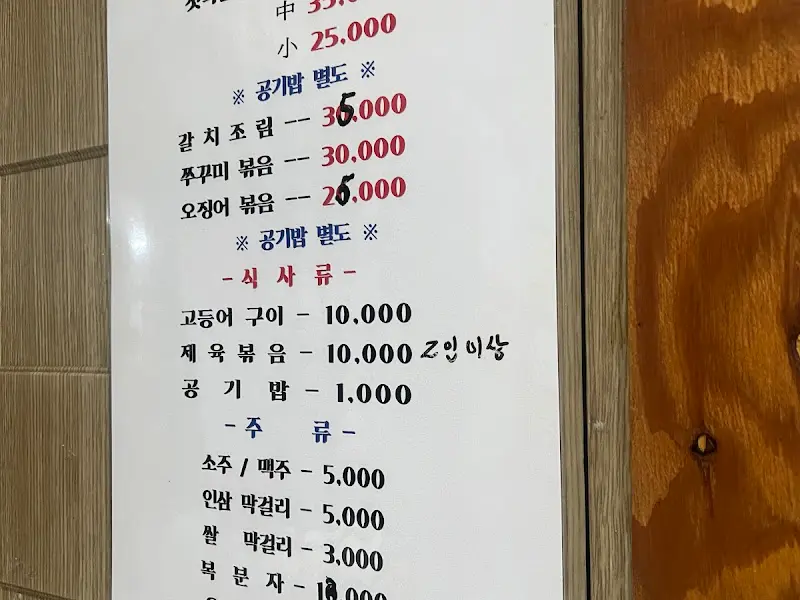 中 35,000
小 25,000
※ 공기밥 별도 ※
갈치조림 -- 35,000
쭈꾸미 볶음 -- 30,000
오징어 볶음 -- 25,000
※ 공기밥 별도 ※
- 식 사 류 -
고등어 구이 - 10,000
제 육 볶 음 - 10,000 2인 이상
공 기 밥 - 1,000
- 주 류 -
소주 / 맥주 - 5,000
인삼 막걸리 - 5,000
쌀 막걸리 - 3,000
복 분 자 -